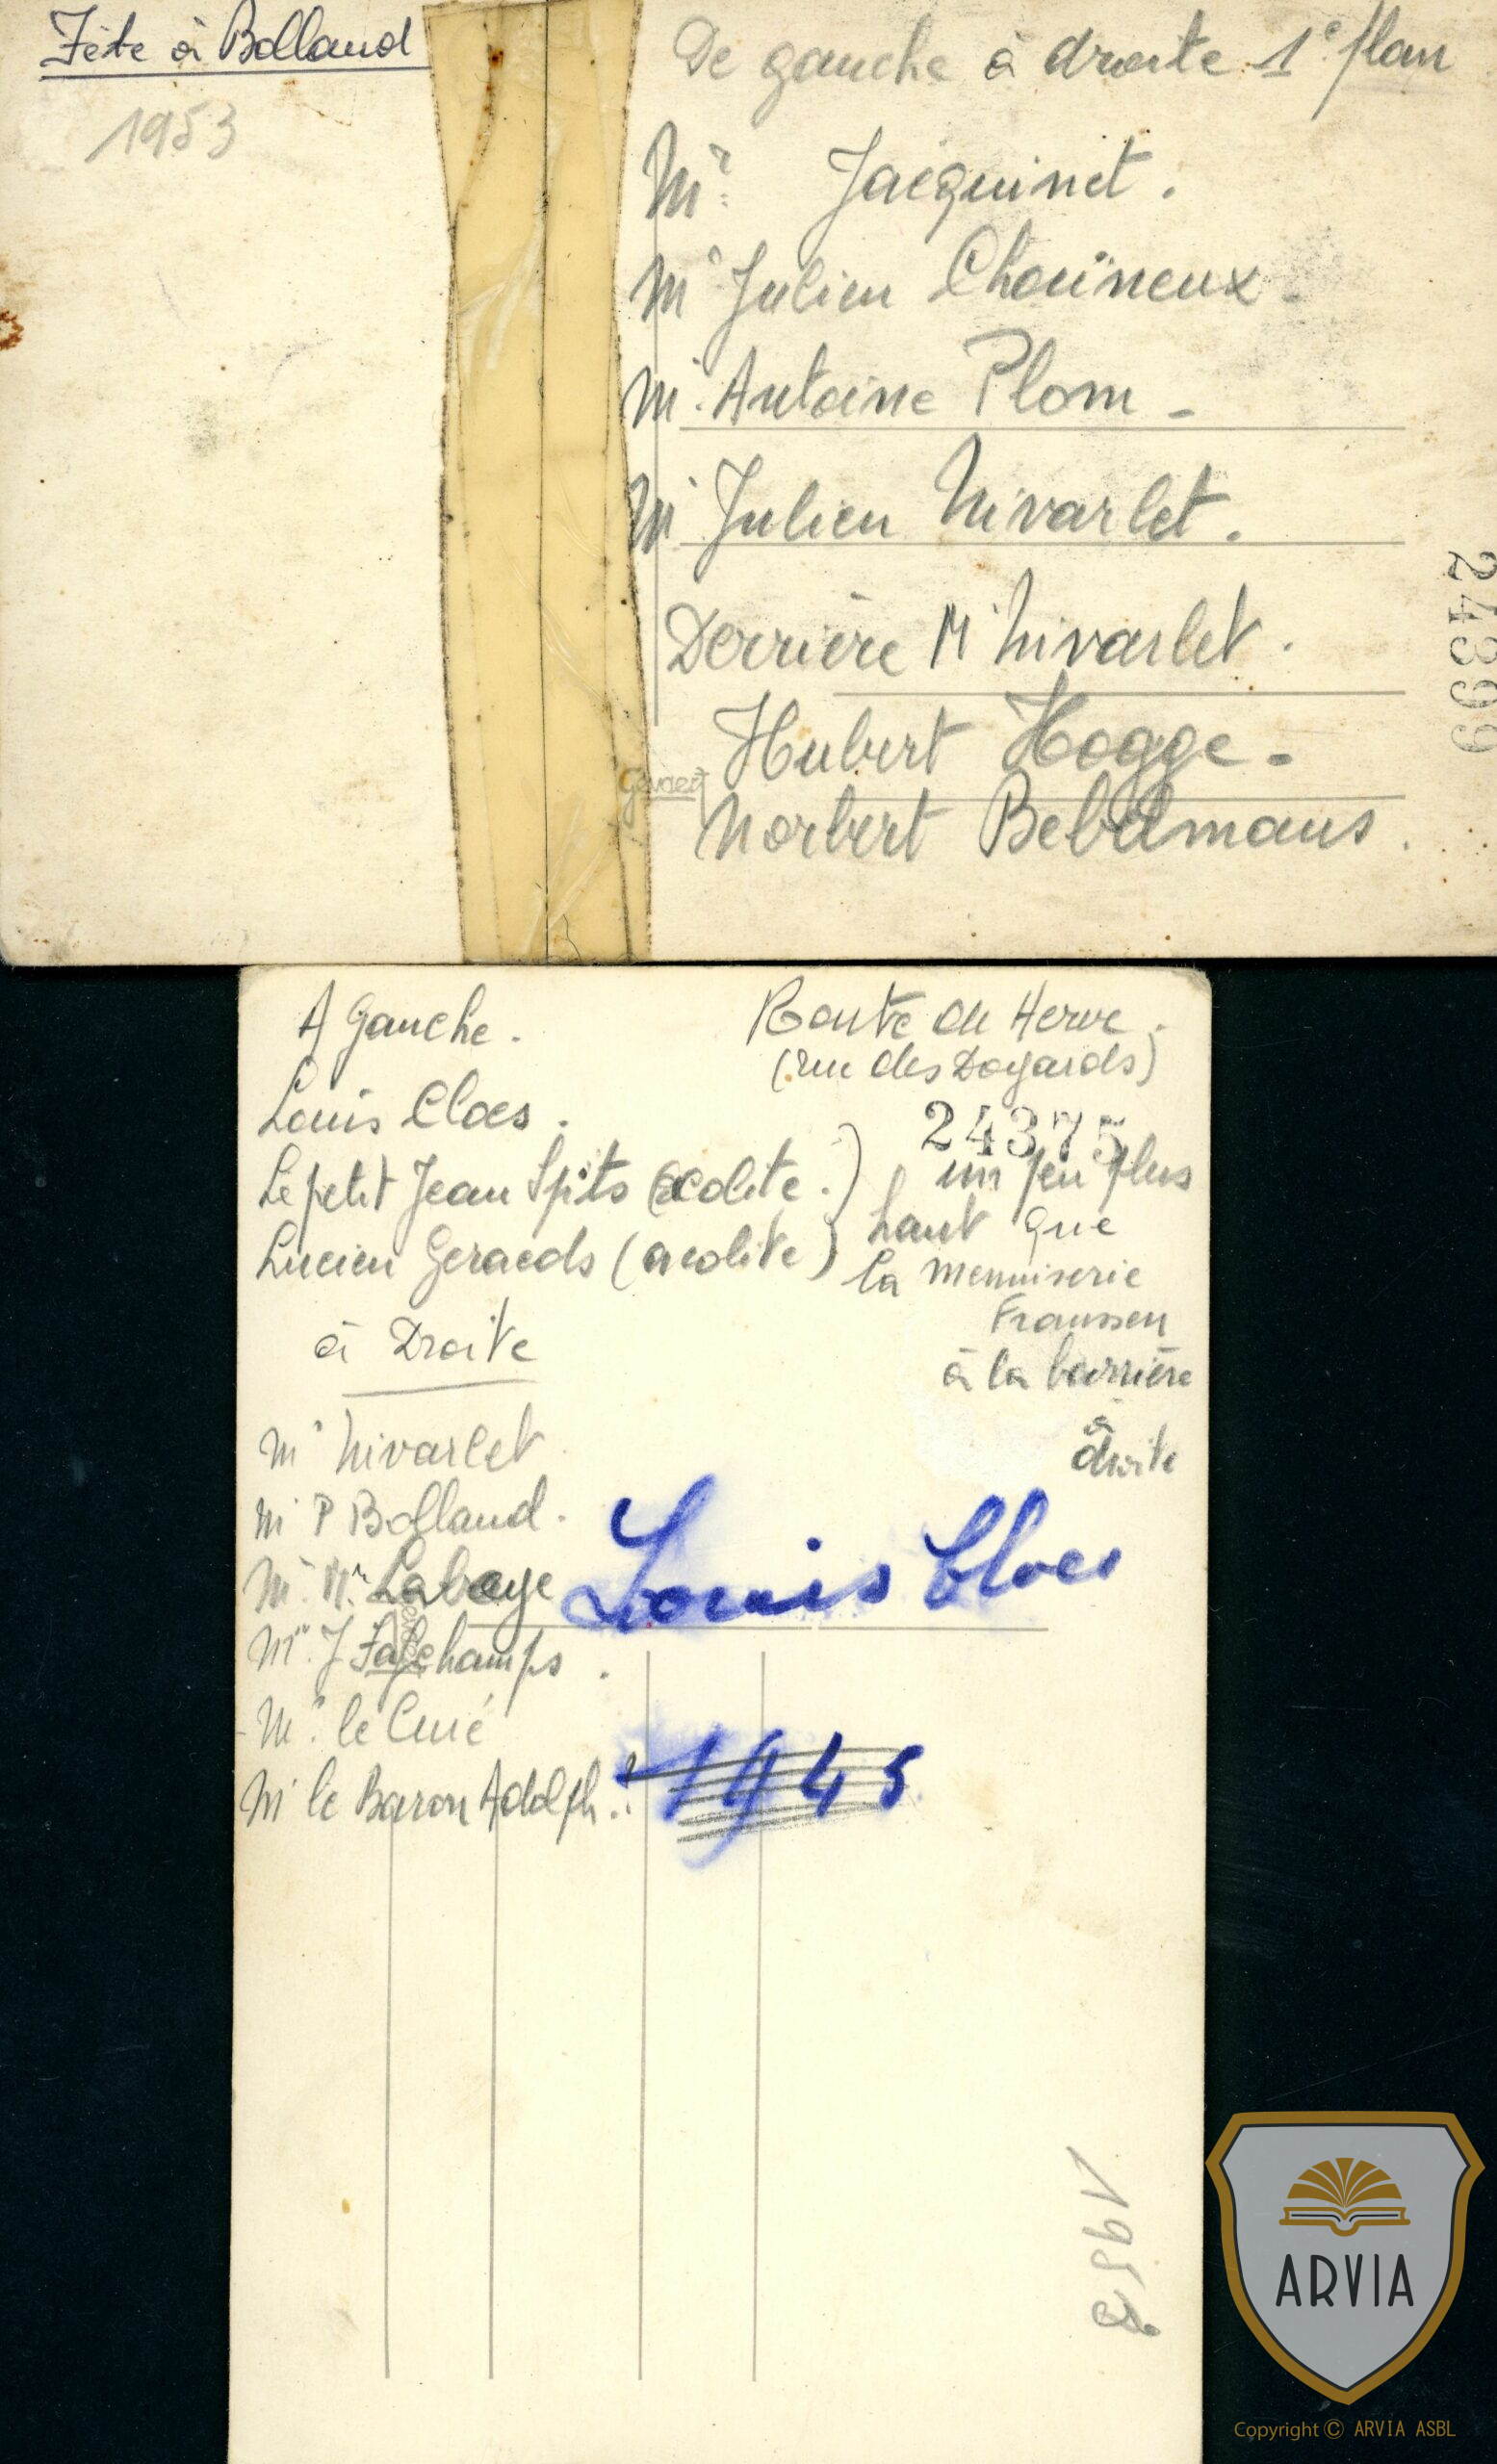 Fête à Bolland
1953
De gauche à droite 1e plan
Mr Jacquinet.
Mr Julien Chaineux -
Mr Antoine Plom -
Mr Julien Nivarlet.
Derrière Mr Nivarlet.
Hubert Hogge -
Norbert Bebelmans.
Gevaert
24399
A Gauche.
Louis Cloes.
Le petit Jean Spits (acolite.)
Lucien Geraeds (acolite)
à Droite
Mr Nivarlet
Mr P Bolland.
Mr. Mce Labaye
Mr. J Fafchamps.
- Mr. le Curé
Mr le Baron Adolph..
Route de Herve.
(rue des Doyards)
24375
un peu plus
haut que
la menuiserie
Franssen
à la barrière
à
droite
Louis Cloes
1945
1953
ARVIA
Copyright © ARVIA ASBL